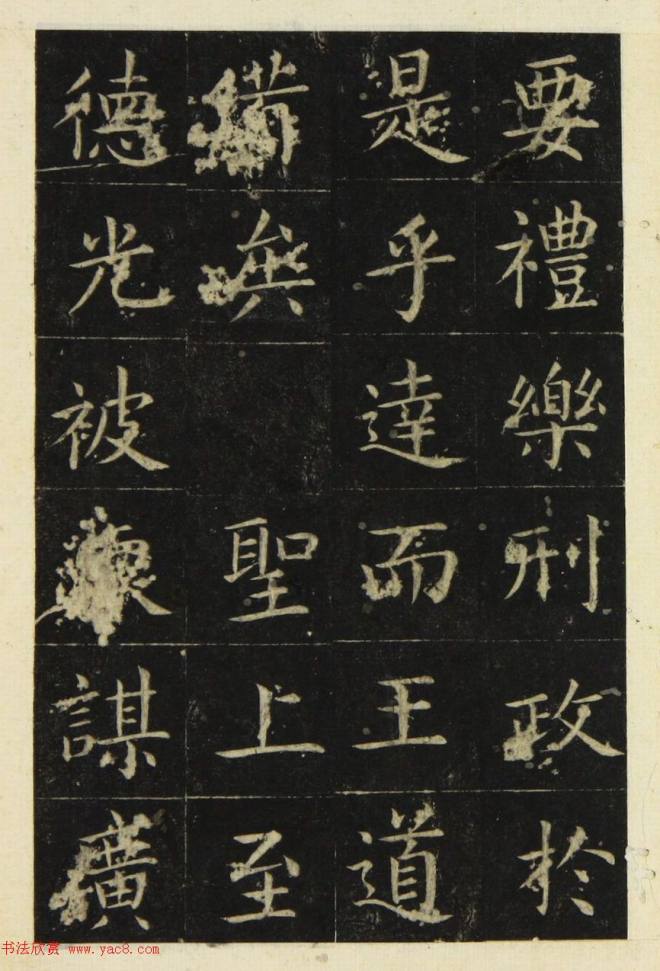 要禮樂刑政於
是乎達而王道
備聖上至
德光被謀廣
书法欣赏 www.yac8.com